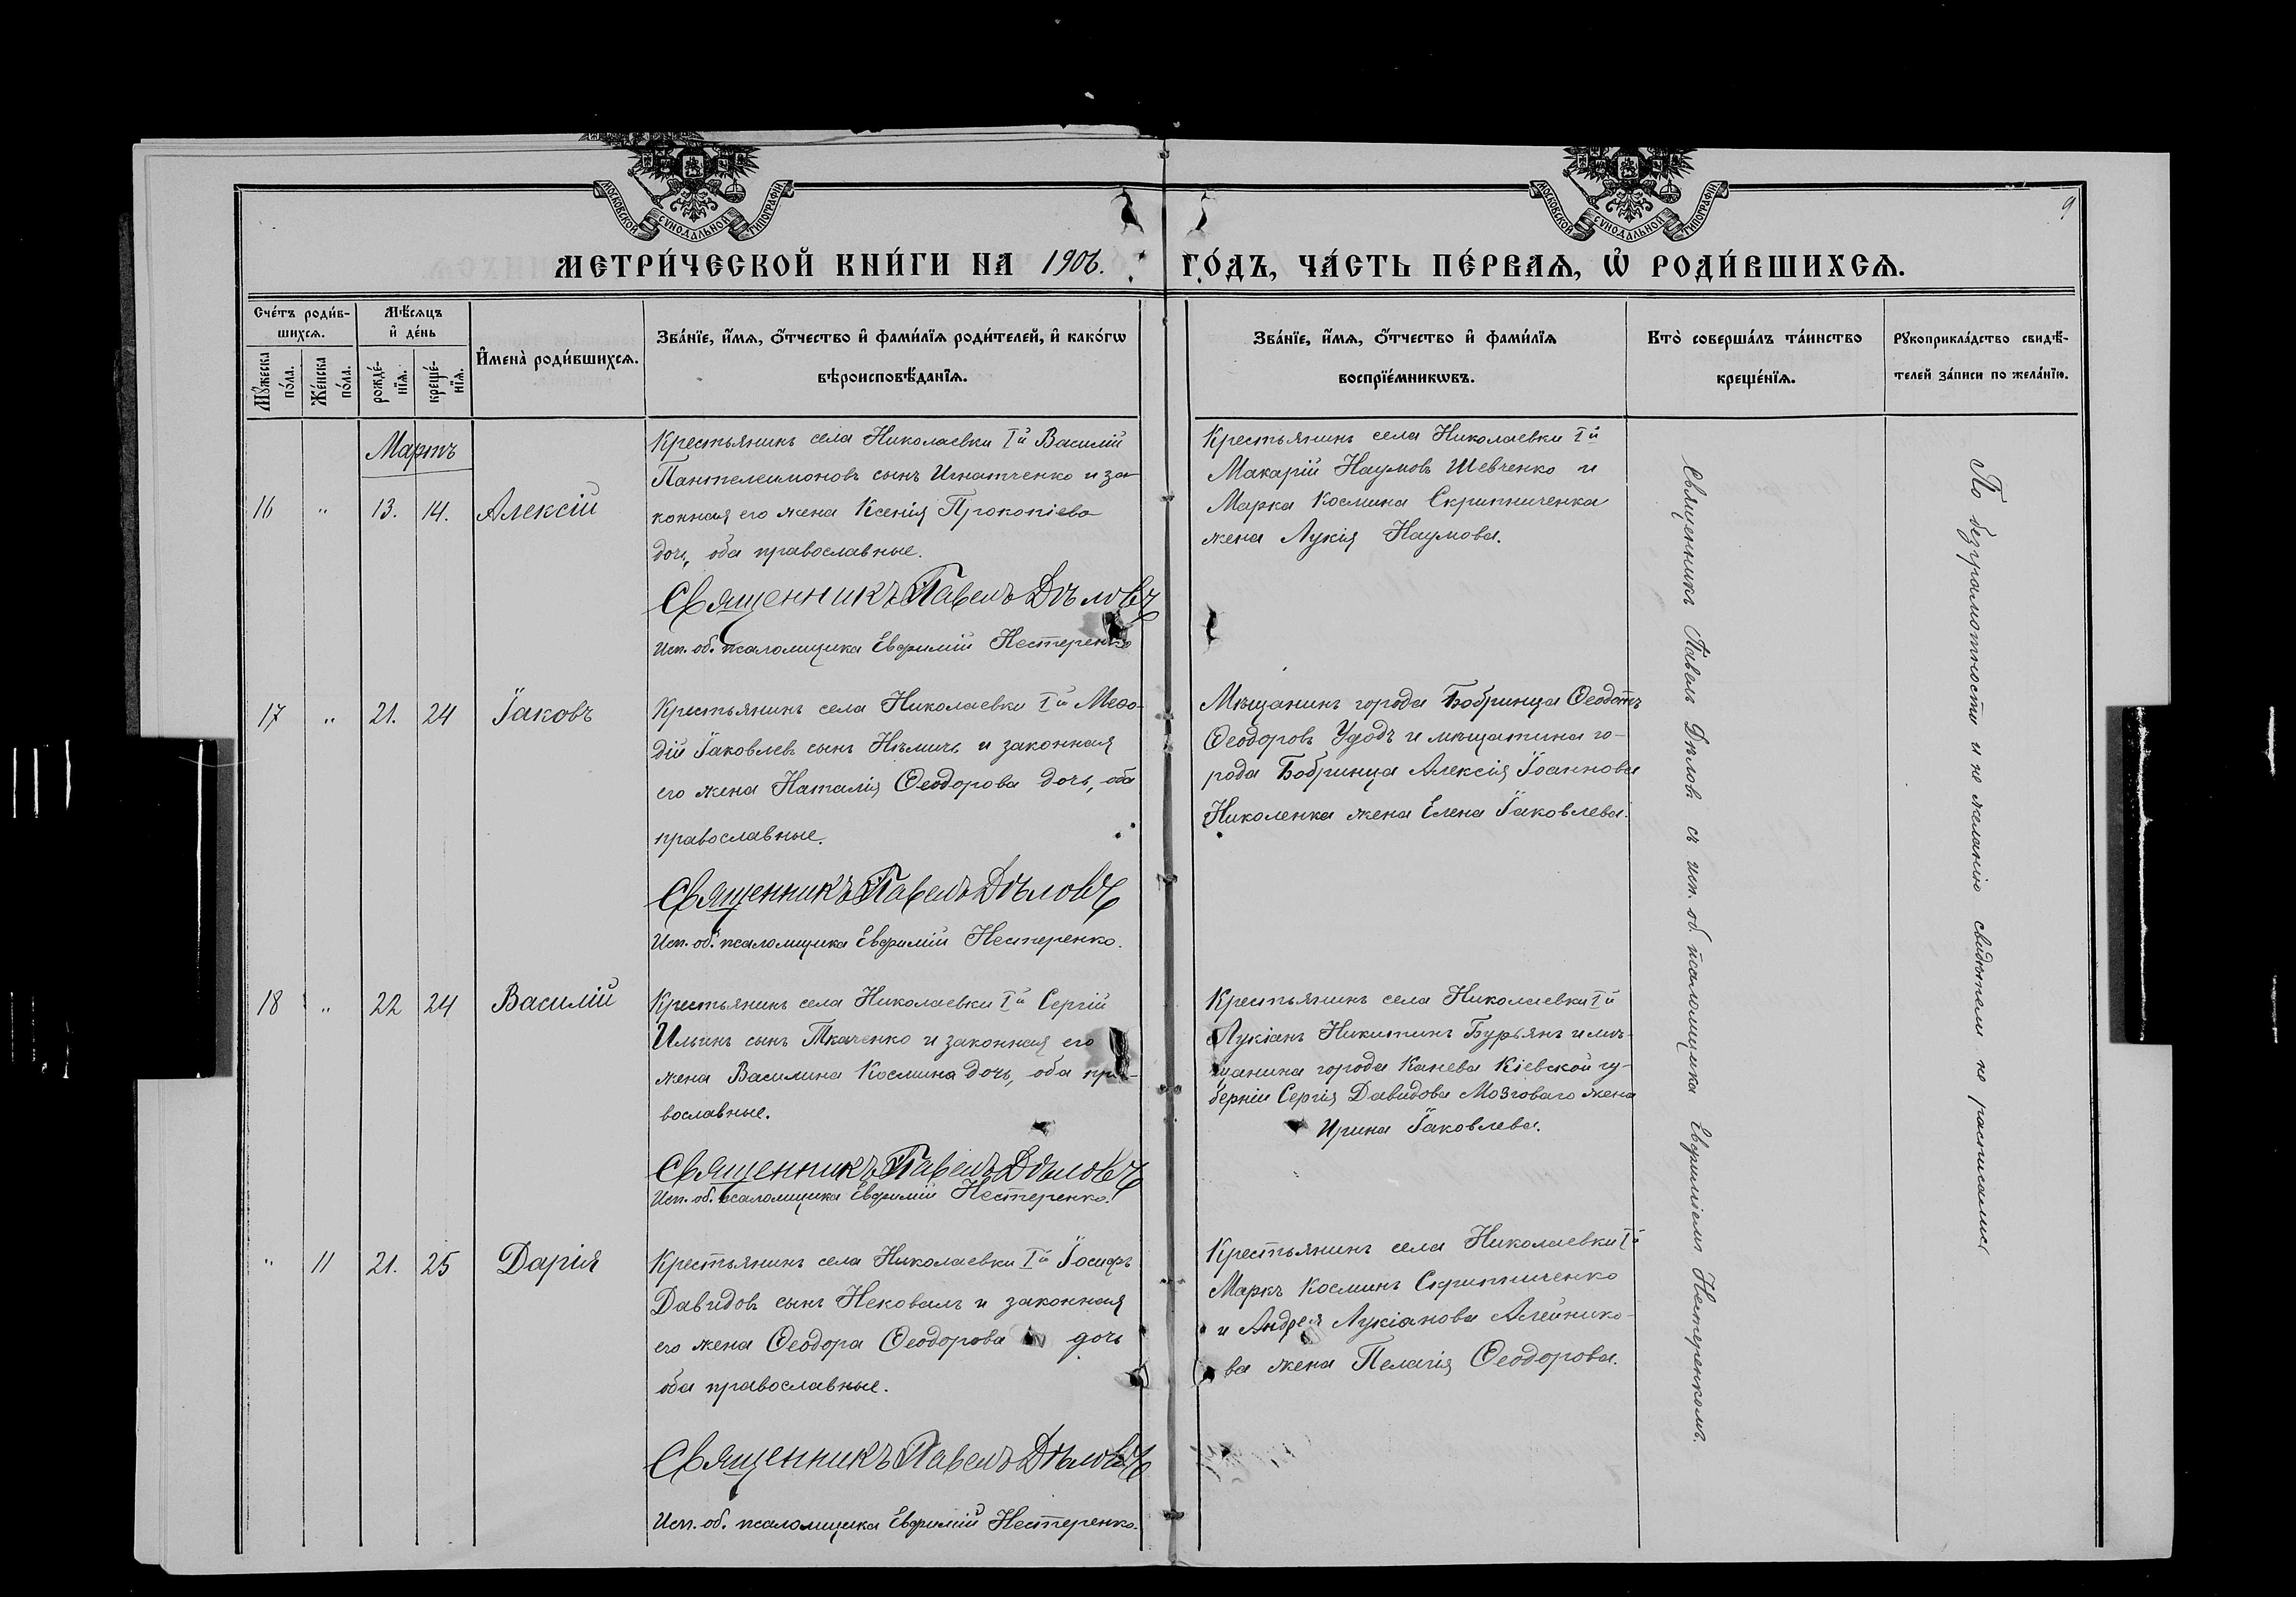 МОСКОВСКОЙ СѴНОДАЛЬНОЙ ТИПОГРАФІИ
МОСКОВСКОЙ СѴНОДАЛЬНОЙ ТИПОГРАФІИ
9
МЕТРИ́ЧЕСКОЙ КНИ́ГИ НА 1906. ГО́ДЪ, ЧА́СТЬ ПЕ́РВАѦ, Ѡ҆ РОДИ́ВШИХСѦ.
Сче́тъ роди́в-
шихсѧ.
Мꙋ́жеска по́ла.
Же́нска по́ла.
Мѣ́сѧцъ
и҆ де́нь
рожде́-
нїѧ.
креще́-
нїѧ.
И҆мена̀ роди́вшихсѧ.
Зва́нїе, и҆́мѧ, ѻ҆́тчество и҆ фами́лїѧ роди́телей, и҆ како́гѡ
вѣроисповѣ́данїѧ.
Зва́нїе, и҆́мѧ, ѻ҆́тчество и҆ фами́лїѧ
воспрїе́мникѡвъ.
Кто̀ соверша́лъ та́инство
креще́нїѧ.
Рꙋкоприкла́дство свидѣ́-
телей за́писи по жела́нїю.
Мартъ
16 " 13. 14. Алексій
Крестьянинъ села Николаевки Iй Василій
Пантелеимоновъ сынъ Игнатченко и за-
конная его жена Ксенія Прокопіева
дочь, оба православные.
Священникъ Павелъ Дѣловъ
Исп. об. псаломщика Евфимій Нестеренко
Крестьянинъ села Николаевки Iй
Макарій Наумовъ Шевченко и
Марка Космина Скрипниченка
жена Лукія Наумова.
17 " 21. 24 Іаковъ
Крестьянинъ села Николаевки Iй Меѳо-
дій Іаковлевъ сынъ Нѣмичъ и законная
его жена Наталія Ѳеодорова дочь, оба
православные.
Священникъ Павелъ Дѣловъ
Исп. об. псаломщика Евфимій Нестеренко.
Мѣщанинъ города Бобринца Ѳеодотъ
Ѳеодоровъ Удодъ и мѣщанина го-
рода Бобринца Алексія Іоаннова
Николенка жена Елена Іаковлева.
18 " 22 24 Василій
Крестьянинъ села Николаевки Iй Сергій
Ильинъ сынъ Ткаченко и законная его
жена Василина Космина дочь, оба пра-
вославные.
Священникъ Павелъ Дѣловъ
Исп. об. псаломщика Евфимій Нестеренко.
Крестьянинъ села Николаевки Iй
Лукіанъ Никитинъ Бурьянъ и мѣ-
щанина города Канева Кіевской гу-
берніи Сергія Давидова Мозговаго жена
Ирина Іаковлева.
" 11 21. 25 Дарія
Крестьянинъ села Николаевки Iй Іосифъ
Давидовъ сынъ Нековаль и законная
его жена Ѳеодора Ѳеодорова дочь
оба православные.
Священникъ Павелъ Дѣловъ
Исп. об. псаломщика Евфимій Нестеренко.
Крестьянинъ села Николаевки Iй
Маркъ Косминъ Скрипниченко
и Андрея Лукіанова Алейнико-
ва жена Пелагія Ѳеодорова.
Священникъ Павелъ Дѣловъ съ исп. об. псаломщика Евфиміемъ Нестеренкомъ.
По безграмотности и не желанію свидѣтели не расписались